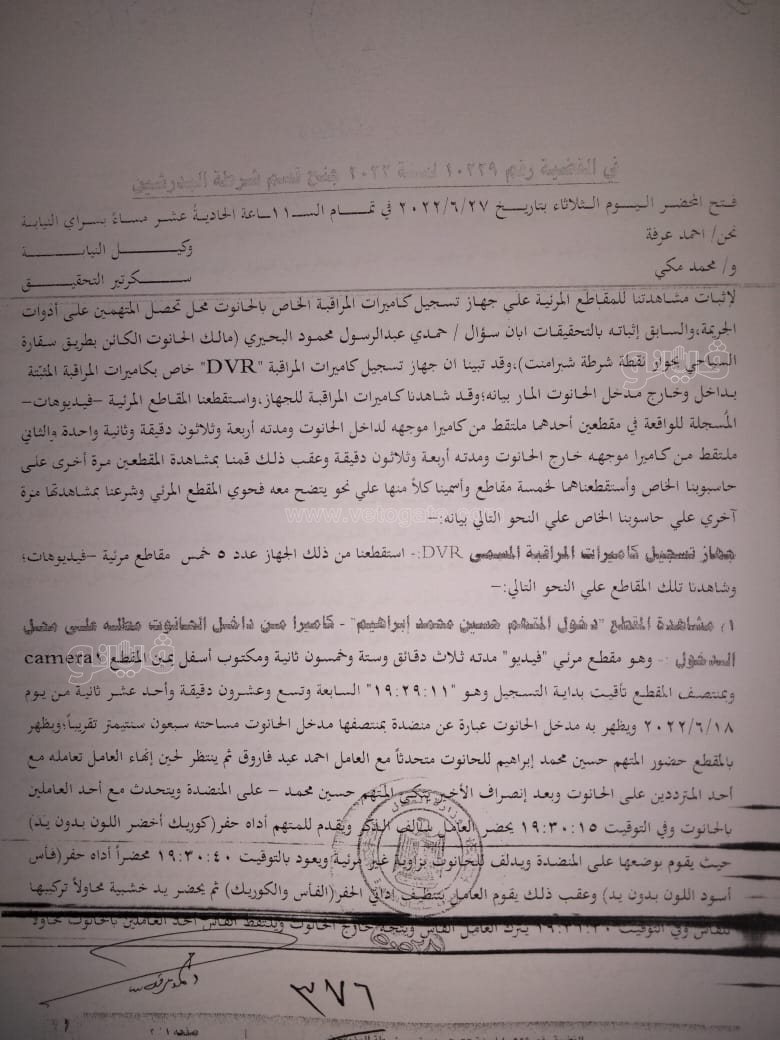 في القضية رقم ١٠٢٢٩ لسنة ٢٠٢٢ جنح قسم شرطة البدرشين
فتح المحضر اليوم الثلاثاء بتاريخ ٢٠٢٢/٦/٢٧ في تمام الـ١١ساعة الحادية عشر مساءً بسراي النيابة
نحن/ احمد عرفة وكيل النيابة
و/ محمد مكي سكرتير التحقيق
لإثبات مشاهدتنا للمقاطع المرئية علي جهاز تسجيل كاميرات المراقبة الخاص بالحانوت محل تحصل المتهمين على أذوات
الجريمة،والسابق إثباته بالتحقيقات ابان سؤال / حمدي عبدالرسول محمود البحيري (مالك الحانوت الكائن بطريق سقارة
السياحي بجوار نقطة شرطة شبرامنت)،وقد تبينا ان جهاز تسجيل كاميرات المراقبة "DVR" خاص بكاميرات المراقبة المثبتة
بداخل وخارج مدخل الحانوت المار بيانه؛وقد شاهدنا كاميرات المراقبة للجهاز،واستقطعنا المقاطع المرئية –فيديوهات–
المُسجلة للواقعة في مقطعين أحدهما ملتقط من كاميرا موجهه لداخل الحانوت ومدته أربعة وثلاثون دقيقة وثانية واحدة والثاني
ملتقط من كاميرا موجهه خارج الحانوت ومدته أربعة وثلاثون دقيقة وعقب ذلك قمنا بمشاهدة المقطعين مرة أخرى على
حاسوبنا الخاص وأستقطعناهما لخمسة مقاطع وأسمينا كلاً منها علي نحو يتضح معه فحوي المقطع المرئي وشرعنا بمشاهدتها مرة
آخري علي حاسوبنا الخاص علي النحو التالي بيانه:–
www.vetogate.com
جهاز تسجيل كاميرات المراقبة المسمى DVR:- استقطعنا من ذلك الجهاز عدد ٥ خمس مقاطع مرئية –فيديوهات؛
وشاهدنا تلك المقاطع علي النحو التالي:–
١) مشاهدة المقطع "دخول المتهم حسين محمد إبراهيم" - كاميرا من داخل الحانوت مطله على محل
الدخول :- وهو مقطع مرئي "فيديو" مدته ثلاث دقائق وستة وخمسون ثانية ومكتوب أسفل يمين المقطع camera١
وبمنتصف المقطع تأقيت بداية التسجيل وهو "١٩:٢٩:١١" السابعة وتسع وعشرون دقيقة وأحد عشر ثانية من يوم
٢٠٢٢/٦/١٨ ويظهر به مدخل الحانوت عبارة عن منضدة بمنتصفها مدخل الحانوت مساحته سبعون سنتيمتر تقريباً؛ويظهر
بالمقطع حضور المتهم حسين محمد إبراهيم للحانوت متحدثاً مع العامل احمد عيد فاروق ثم ينتظر لحين إنهاء العامل تعامله مع
أحد المترددين على الحانوت وبعد إنصراف الأخير يتكئ المتهم حسين محمد – على المنضدة ويتحدث مع أحد العاملين
بالحانوت وفي التوقيت ١٩:٣٠:١٥ يحضر العامل سالف الذكر ويقدم للمتهم أداه حفر(كوريك أخضر اللون بدون يد)
حيث يقوم بوضعها على المنضدة ويدلف للحانوت بزاوية غير مرئية ويعود بالتوقيت ١٩:٣٠:٤٠ محضراً أداه حفر(فأس
أسود اللون بدون يد) وعقب ذلك يقوم العامل بتنظيف إداتي الحفر(الفأس والكوريك) ثم يحضر يد خشبية محاولاً تركيبها
للفأس وفي التوقيت يترك العامل الفأس ويتجه خارج الحانوت ويلتقط الفأس أحد العاملين بالحانوت محاولاً
٣٧٦